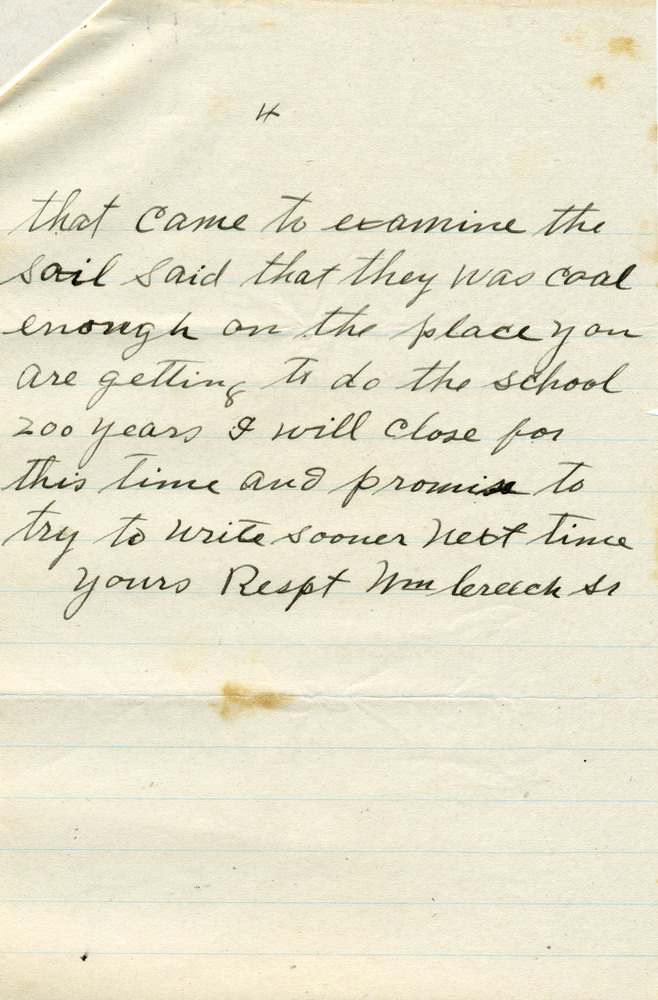 4
that came to examine the
soil said that they was coal
enough on the place you
are getting to do the school
200 years I will close for
this time and promise to
try to write sooner next time
yours Respt Wm Creech Sr